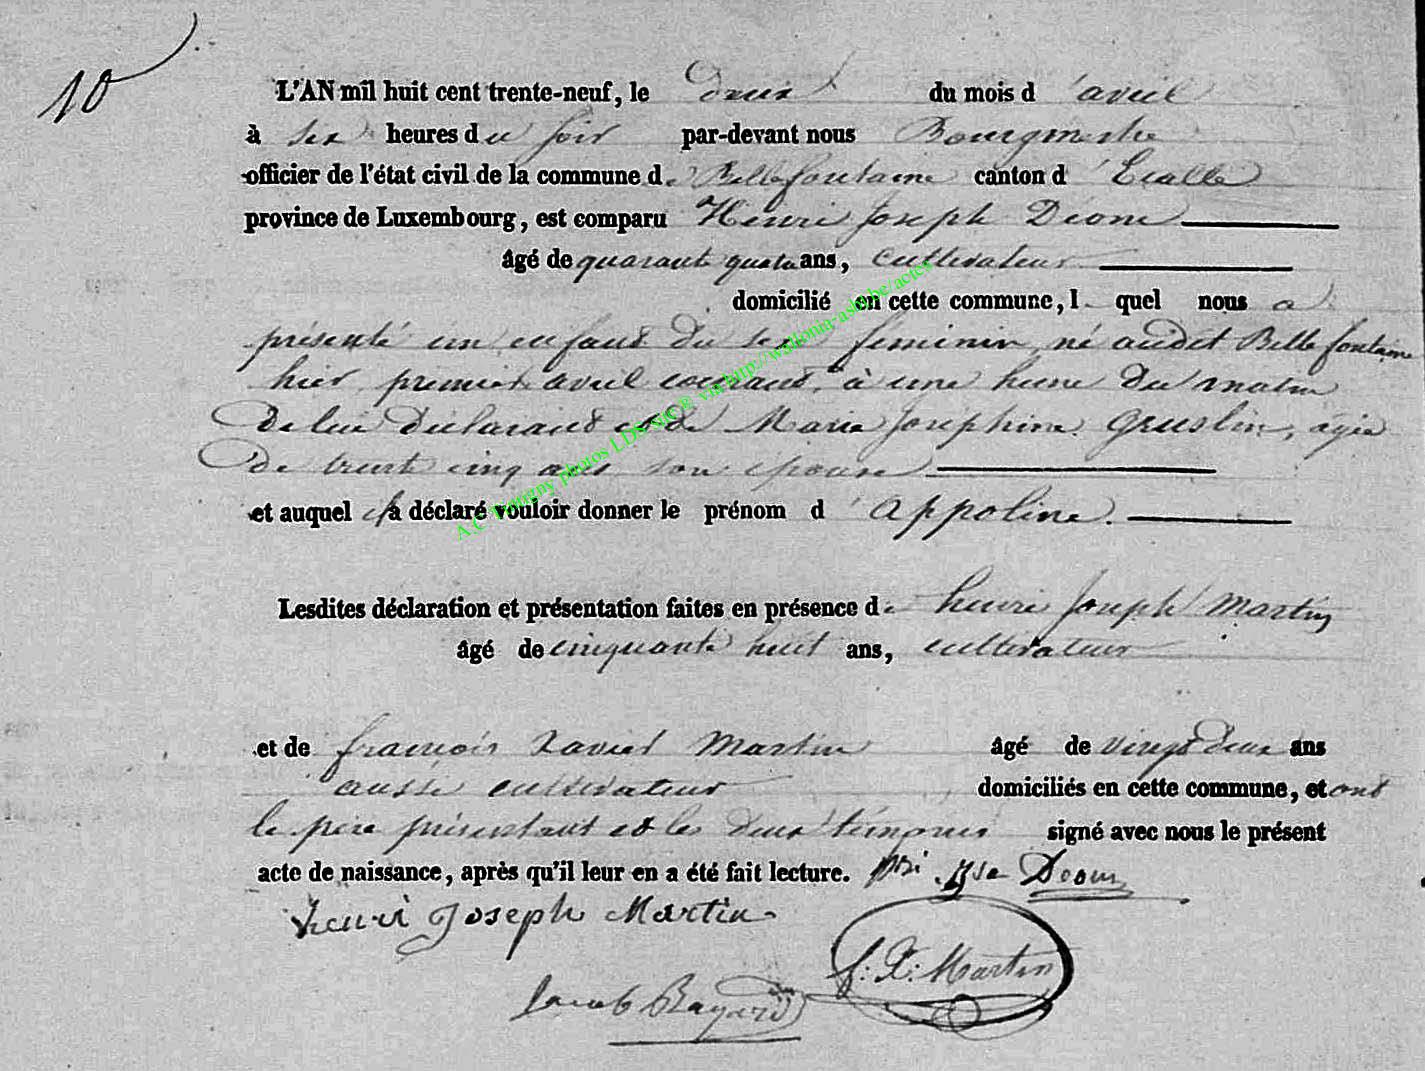 10
L'AN mil huit cent trente-neuf, le deux du mois d'avril
à six heures du soir par-devant nous Bourgmestre
officier de l'état civil de la commune de Bellefontaine canton d'Etalle
province de Luxembourg, est comparu Henri Joseph Déom
âgé de quarante quatre ans, cultivateur
domicilié en cette commune, lequel nous a
présenté un enfant du sexe féminin né audit Bellefontaine
hier premier avril courant, à une heure du matin
de lui déclarant et de Marie Josephine Gruslin, agée
de trente cinq ans son epouse
et auquel il a déclaré vouloir donner le prénom d'Appoline.
Lesdites déclaration et présentation faites en présence de henri Joseph Martin
âgé de cinquante huit ans, cultivateur
et de françois Xavier Martin âgé de vingt deux ans
aussi cultivateur domiciliés en cette commune, et ont
le père présentant et les deux témoins signé avec nous le présent
acte de naissance, après qu'il leur en a été fait lecture. Deom
henri Joseph Martin
f: X: Martin
Jacob Bayard
A.C Tintigny photos LDS src ® via http://wallonia-asbl.be/actes